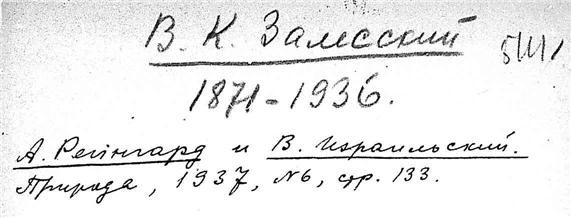 В. К. Залесский
1871-1936.
А. Рейнгард и В. Израильский.
Природа, 1937, №6, стр. 133.